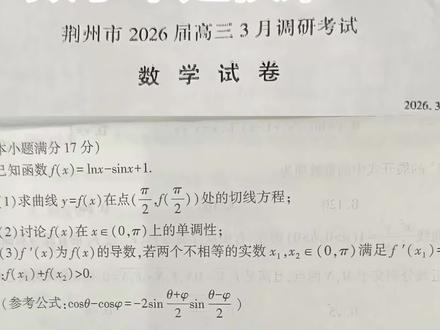 荆州市2026届高三3月调研考试
数学试卷
2026.3
本小题满分17分)
已知函数f(x)=lnx-sinx+1.
(1)求曲线y=f(x)在点(π/2,f(π/2))处的切线方程;
(2)讨论f(x)在x∈(0,π)上的单调性;
(3)f′(x)为f(x)的导数,若两个不相等的实数x₁,x₂∈(0,π)满足f′(x₁)=
:f(x₁)+f(x₂)>0.
(参考公式:cosθ-cosφ=-2sin (θ+φ)/2 sin (θ-φ)/2)